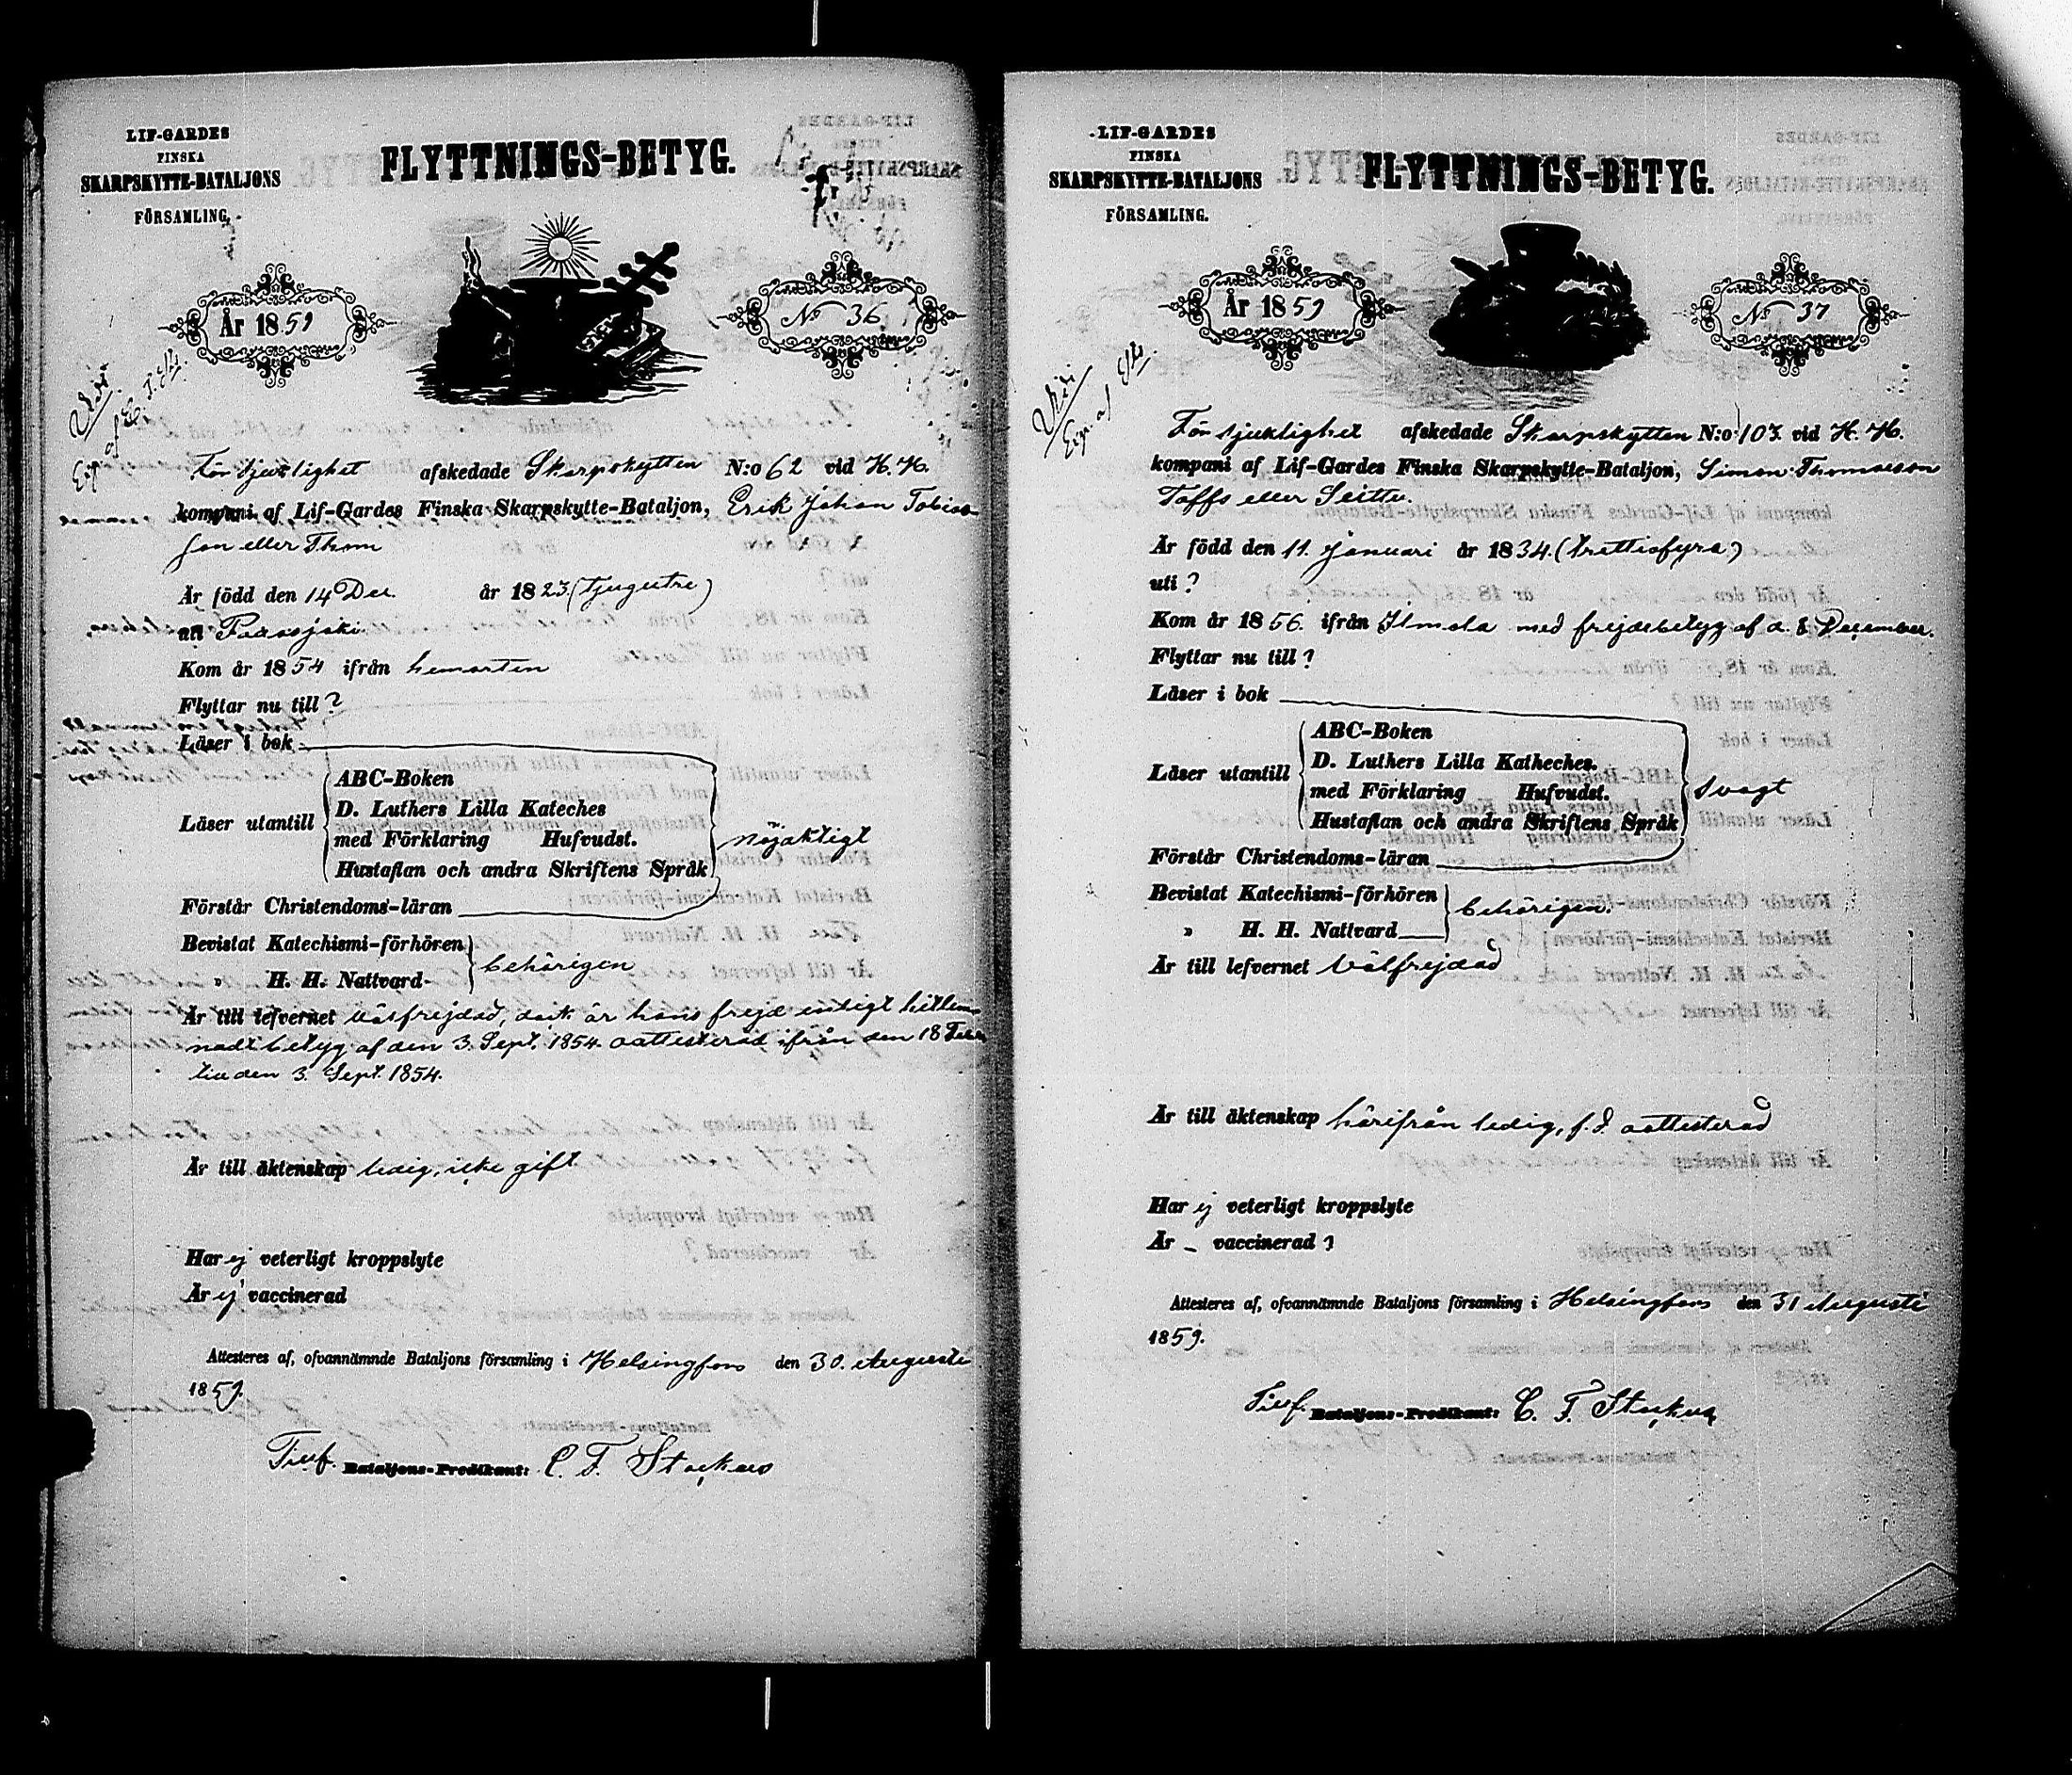 LIF-GARDES
FINSKA
SKARPSKYTTE-BATALJONS
FÖRSAMLING.
FLYTTNINGS-BETYG.
År 1859
No 36
För sjuklighet afskedade Skarpskytten N:o 62 vid H. K.
kompani af Lif-Gardes Finska Skarpskytte-Bataljon, Erik Johan Tobias-
son eller Thom
Är född den 14 Dec. år 1823 (tjugutre)
uti
Kom år 1854 ifrån hemorten
Flyttar nu till?
Läser i bok
Läser utantill
ABC-Boken
D. Luthers Lilla Kateches
med Förklaring Hufvudst.
Hustaflan och andra Skriftens Språk
nöjaktigt
Förstår Christendoms-läran
Bevistat Katechismi-förhören
H. H. Nattvard
behörigen
Är till lefvernet välfrejdad, dock är hans frejd enligt hitlem-
nadt betyg af den 3. Sept. 1854. oattesterad ifrån den 18 Febr.
till den 3. Sept. 1854.
Är till äktenskap ledig, icke gift
Har ej veterligt kroppslyte
Är ej vaccinerad
Attesteres af, ofvannämnde Bataljons församling i Helsingfors den 30. Augusti
1859.
Bataljons-Predikant: C. F.
LIF-GARDES
FINSKA
SKARPSKYTTE-BATALJONS
FÖRSAMLING.
FLYTTNINGS-BETYG.
År 1859
No 37
Vidi
För sjuklighet afskedade Skarpskytten N:o 107. vid H. K.
kompani af Lif-Gardes Finska Skarpskytte-Bataljon, Simon Thomasson
Toffs eller
Är född den 11. Januari år 1834. (trettiofyra)
uti?
Kom år 1856. ifrån Ilmola med frejdebetyg af d. 8 December.
Flyttar nu till?
Läser i bok
Läser utantill
ABC-Boken
D. Luthers Lilla Katheches.
med Förklaring Hufvudst.
Hustaflan och andra Skriftens Språk
Svagt
Förstår Christendoms-läran
Bevistat Katechismi-förhören
» H. H. Nattvard
behörigen.
Är till lefvernet Välfrejdad
Är till äktenskap härifrån ledig, f. d. oattesterad
Har ej veterligt kroppslyte
Är – vaccinerad?
Attesteres af, ofvannämnde Bataljons församling i Helsingfors den 31 Augusti
1859.
Bataljons-Predikant: C. F.